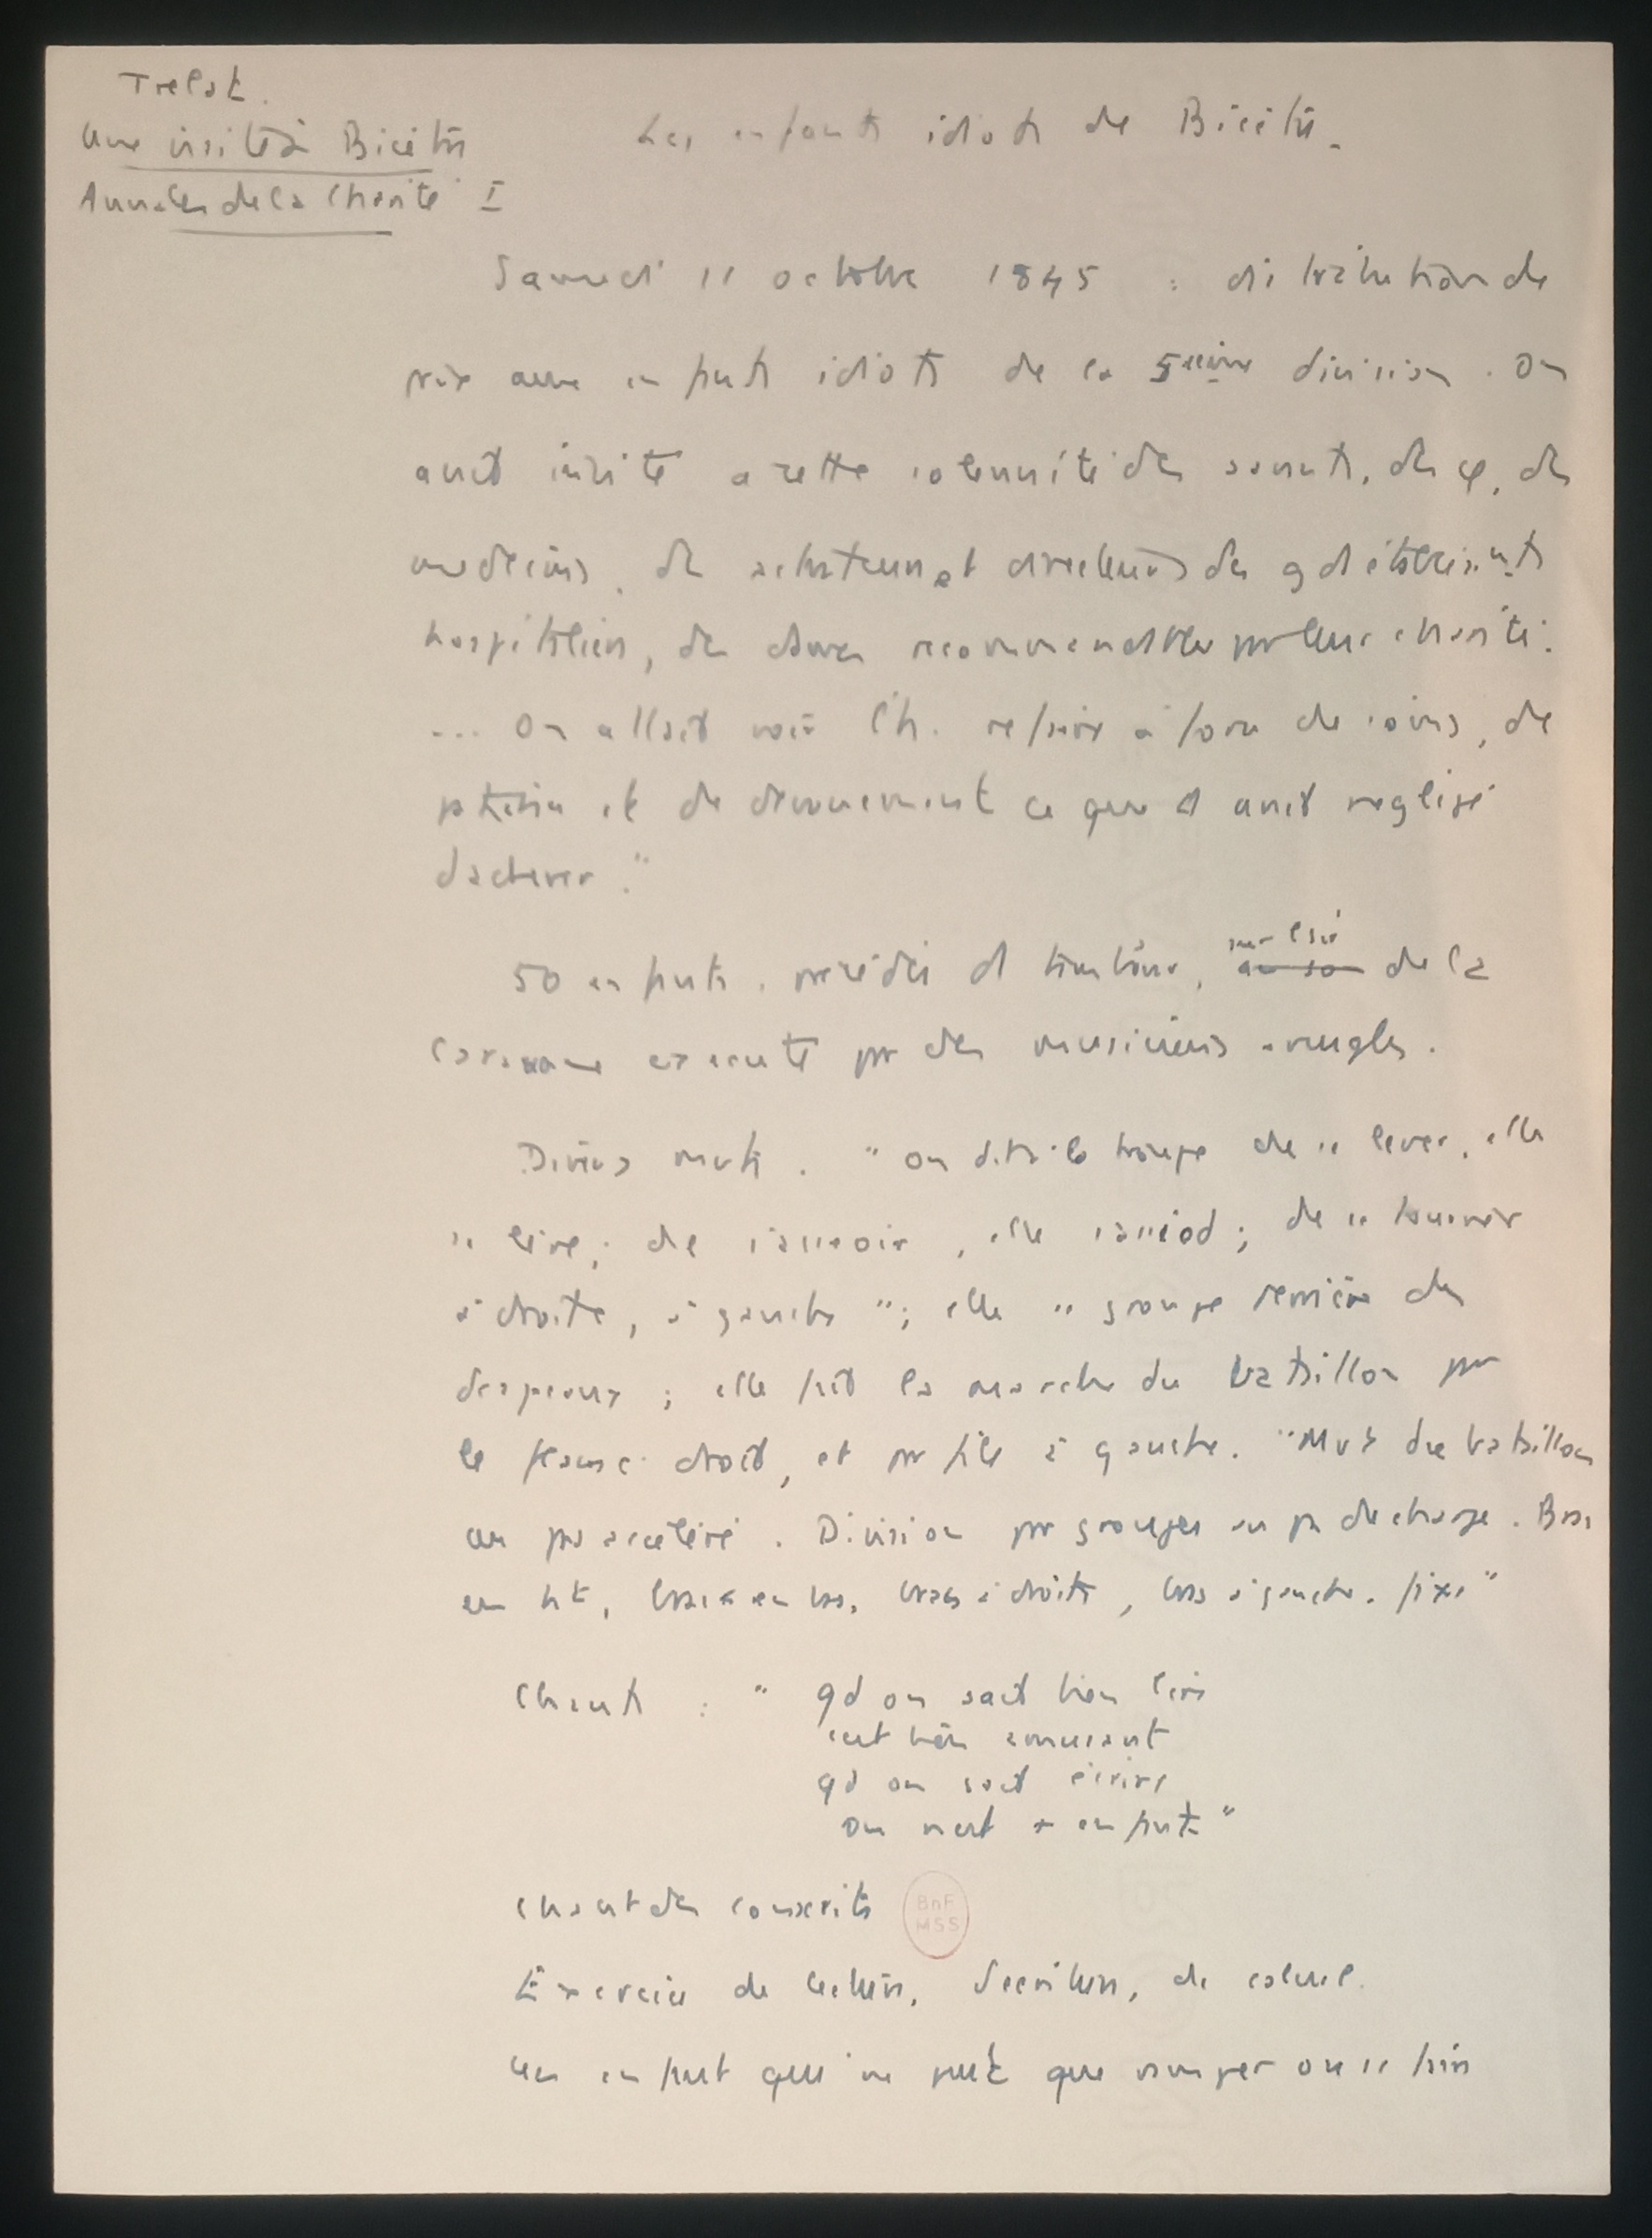 Trelat.
Une visite à Bicêtre
Annales de la Charité I
Les enfants idiots de Bicêtre.
Samedi 11 octobre 1845 : distribution de
prix aux enfants idiots de la 5eme division. On
avait invité a cette solennité des savants, des φ, des
medecins, des administrateurs et directeurs des gd établissements
hospitaliers, des dames recommendables par leur charité.
... On allait voir l'h. refaire à force de soins, de
patience et de devouement ce que D avait negligé
d'achever."
50 enfants. précédés d tambour, sur l'air au son de la
Caravane executé par des musiciens aveugles.
Divers mvts. " on dit à la troupe de se lever, elle
se lève; de s'asseoir, elle s'assied; de se tourner
à droite, à gauche "; elle se groupe derrière des
drapeaux; elle fait la marche du bataillon par
le flanc droit, et par file à gauche. "Mvt du bataillon
au pas accéléré. Division par groupes au pas de charge. Bras
en ht, bras en bas, bras à droite, bras à gauche. fixe"
Chants : " qd on sait bien lire
c'est bien amusant
qd on sait écrire
on n'est + enfant "
Chant des conscrits
BnF
MSS
Exercice de lecture, d'ecriture, de calcul.
Un enfant qui ne peut que ramper ou se